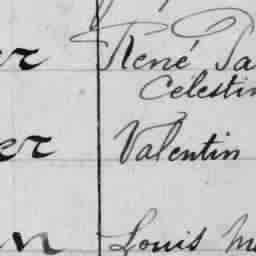 er René Pa
Celestin
er Valentin
n Louis M